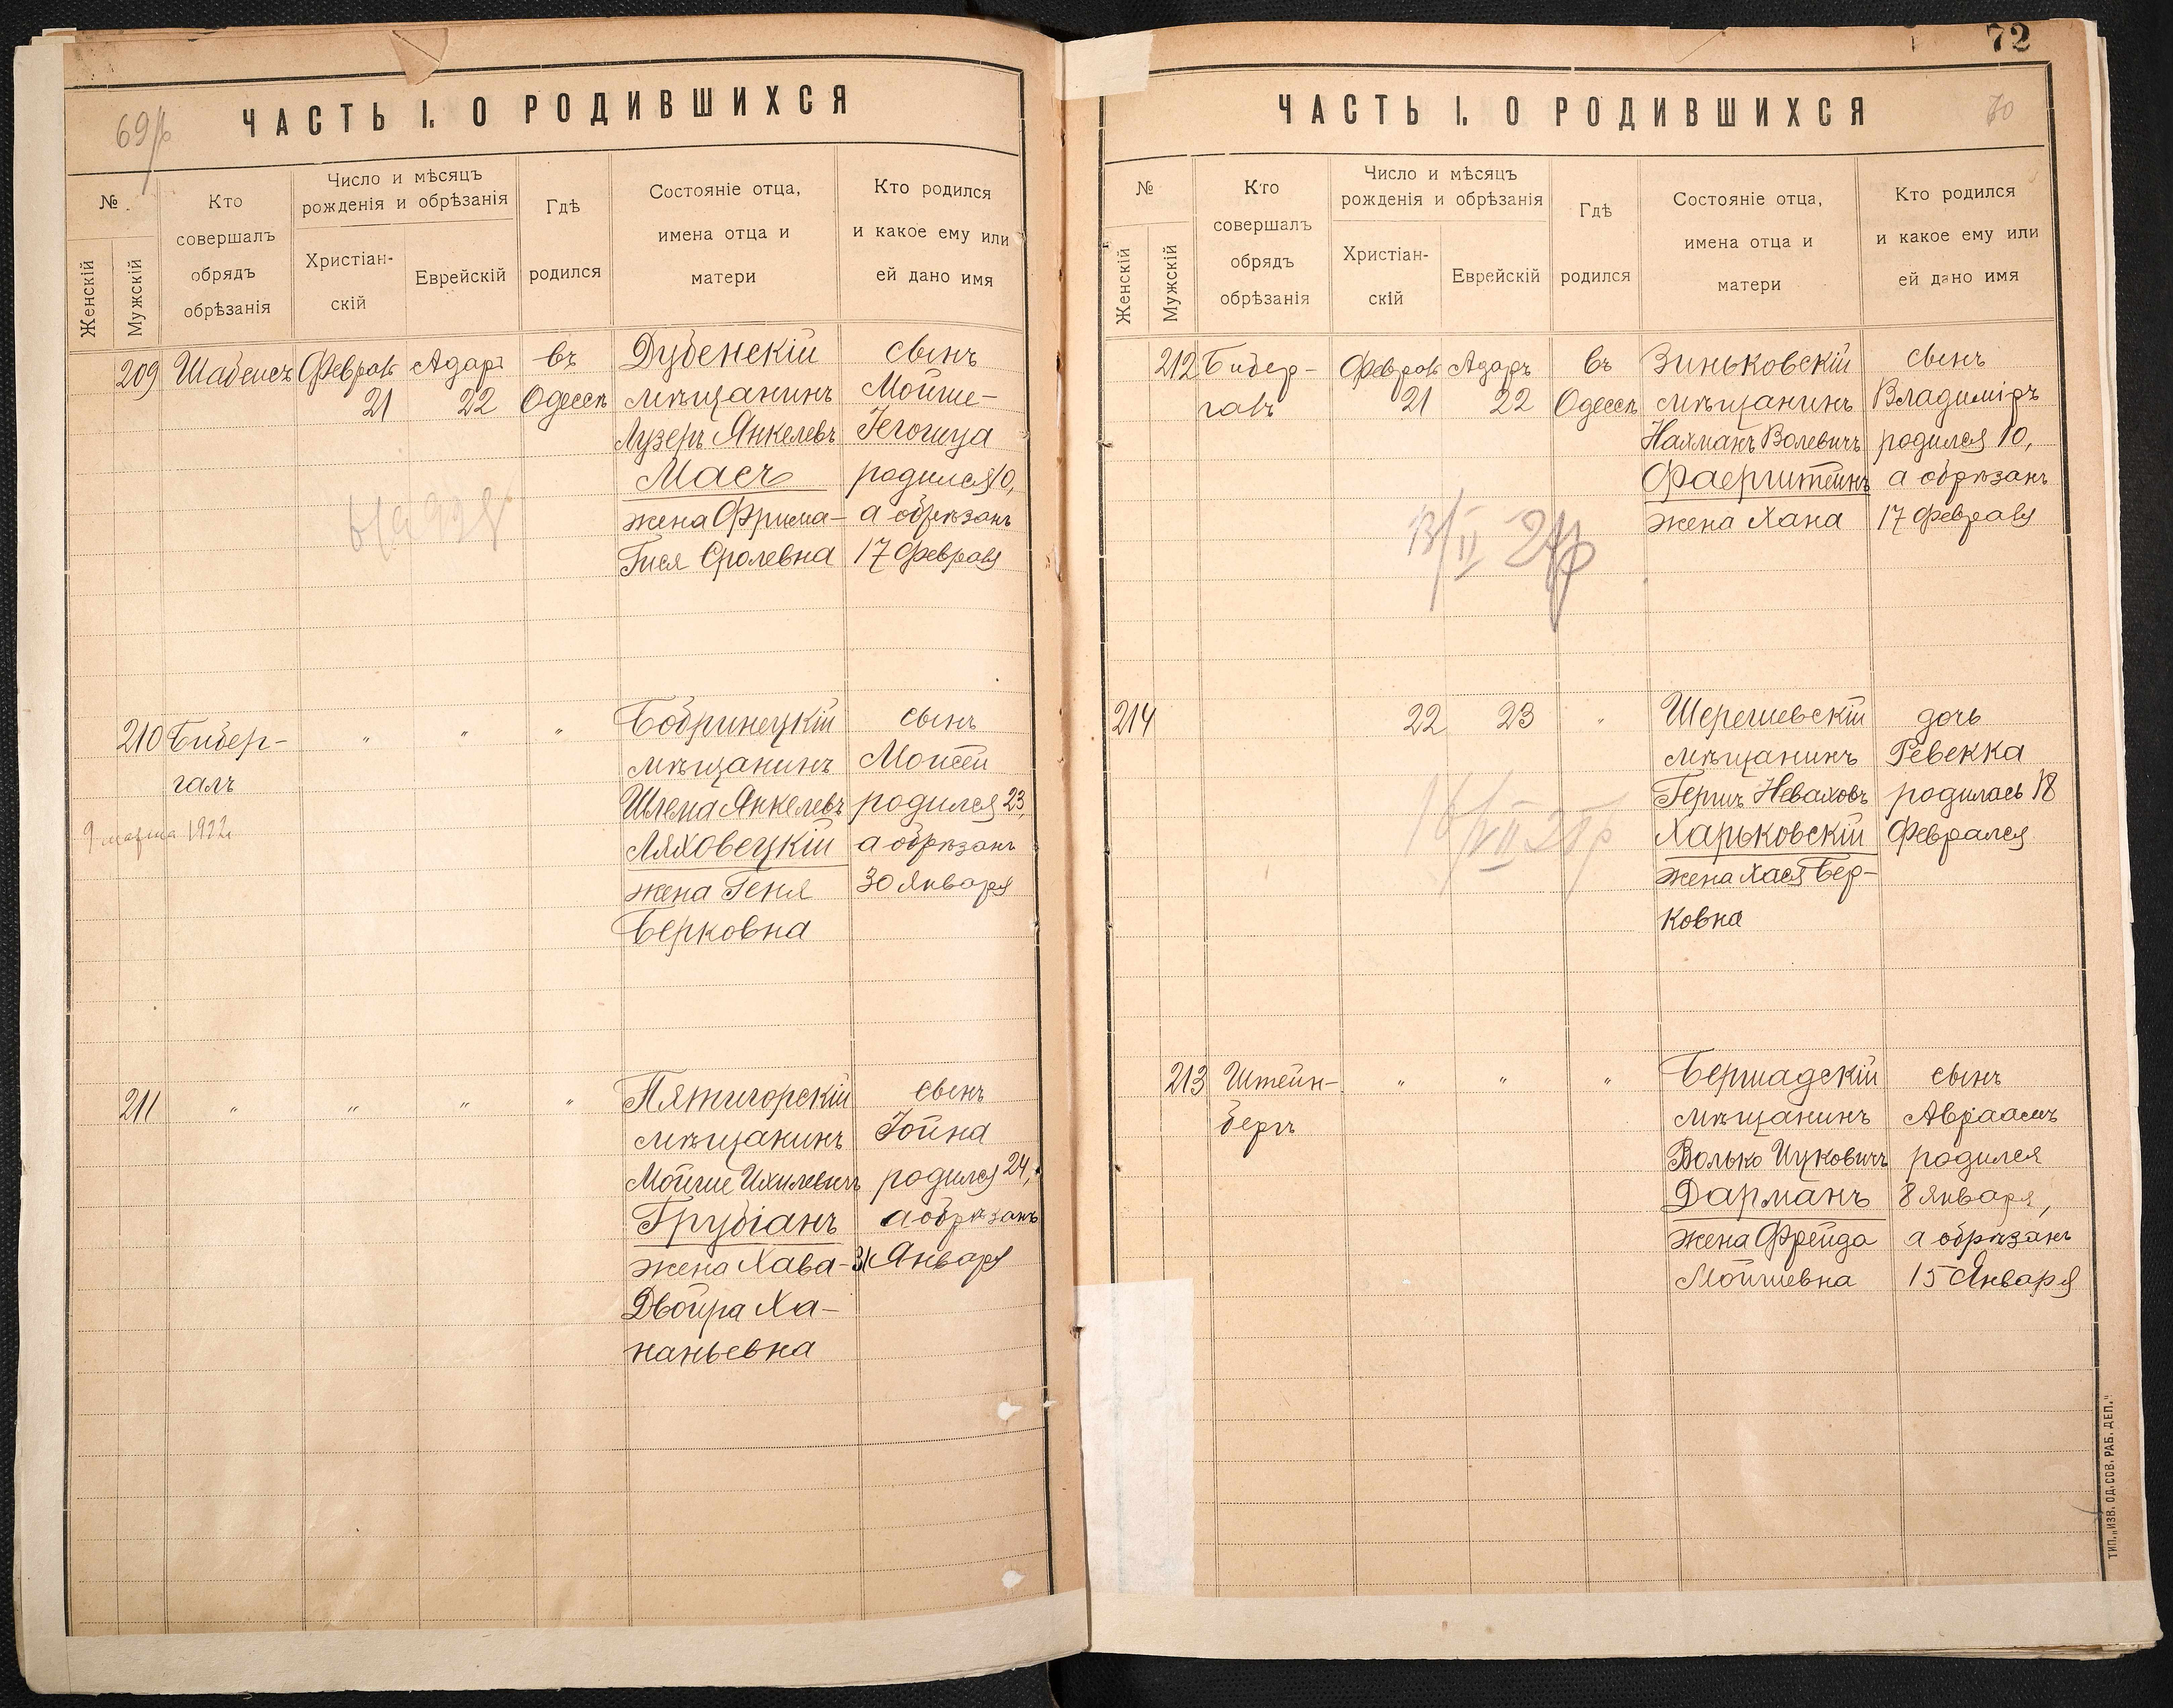 ЧАСТЬ I. О РОДИВШИХСЯ
№
Женскій
Мужскій
Кто
совершалъ
обрядъ
обрѣзанія
Число и мѣсяцъ
рожденія и обрѣзанія
Христіан-
скій
Еврейскій
Гдѣ
родился
Состояніе отца,
имена отца и
матери
Кто родился
и какое ему или
ей дано имя
209
Феврал
21
Адаръ
22
въ
Одессѣ
Дубенскій
мѣщанинъ
Лузеръ Янкелевъ
Масъ
жена Фрима-
Гися Сролевна
сынъ
Мойше-
Іегошуа
родился 10,
а обрѣзанъ
17 Февраля
210
Бибер-
галъ
9 марта 1922
"
"
"
Бобринецкій
мѣщанинъ
Шлема Янкелевъ
Ляховецкій
жена Геня
Берковна
сынъ
Моисей
родился 23,
а обрѣзанъ
30 Января
211
"
"
"
"
Пятигорскій
мѣщанинъ
Мойше Ихилевичъ
Грубіанъ
жена Хава-
Двойра Ха-
наньевна
сынъ
Іойна
родился 24,
а обрѣзанъ
31 Января
72
70
ЧАСТЬ I. О РОДИВШИХСЯ
№
Женскій
Мужскій
Кто
совершалъ
обрядъ
обрѣзанія
Число и мѣсяцъ
рожденія и обрѣзанія
Христіан-
скій
Еврейскій
Гдѣ
родился
Состояніе отца,
имена отца и
матери
Кто родился
и какое ему или
ей дано имя
212
Бибер-
галъ
Феврал
21
Адаръ
22
въ
Одессѣ
Зиньковскій
мѣщанинъ
Нахманъ Волевичъ
Фаерштейнъ
жена Хана
сынъ
Владиміръ
родился 10,
а обрѣзанъ
17 Февраля
214
22
23
"
Шерешевскій
мѣщанинъ
Гершъ Неваховъ
Харьковскій
жена Хася Бер-
ковна
дочь
Ревекка
родилась 18
Февраля
213
Штейн-
бергъ
"
"
"
Бершадскій
мѣщанинъ
Волько Ицковичъ
Дарманъ
жена Фрейда
Мойшевна
сынъ
Авраамъ
родился
8 Января,
а обрѣзанъ
15 Января
ТИП. „ИЗВ. ОД. СОВ. РАБ. ДЕП."